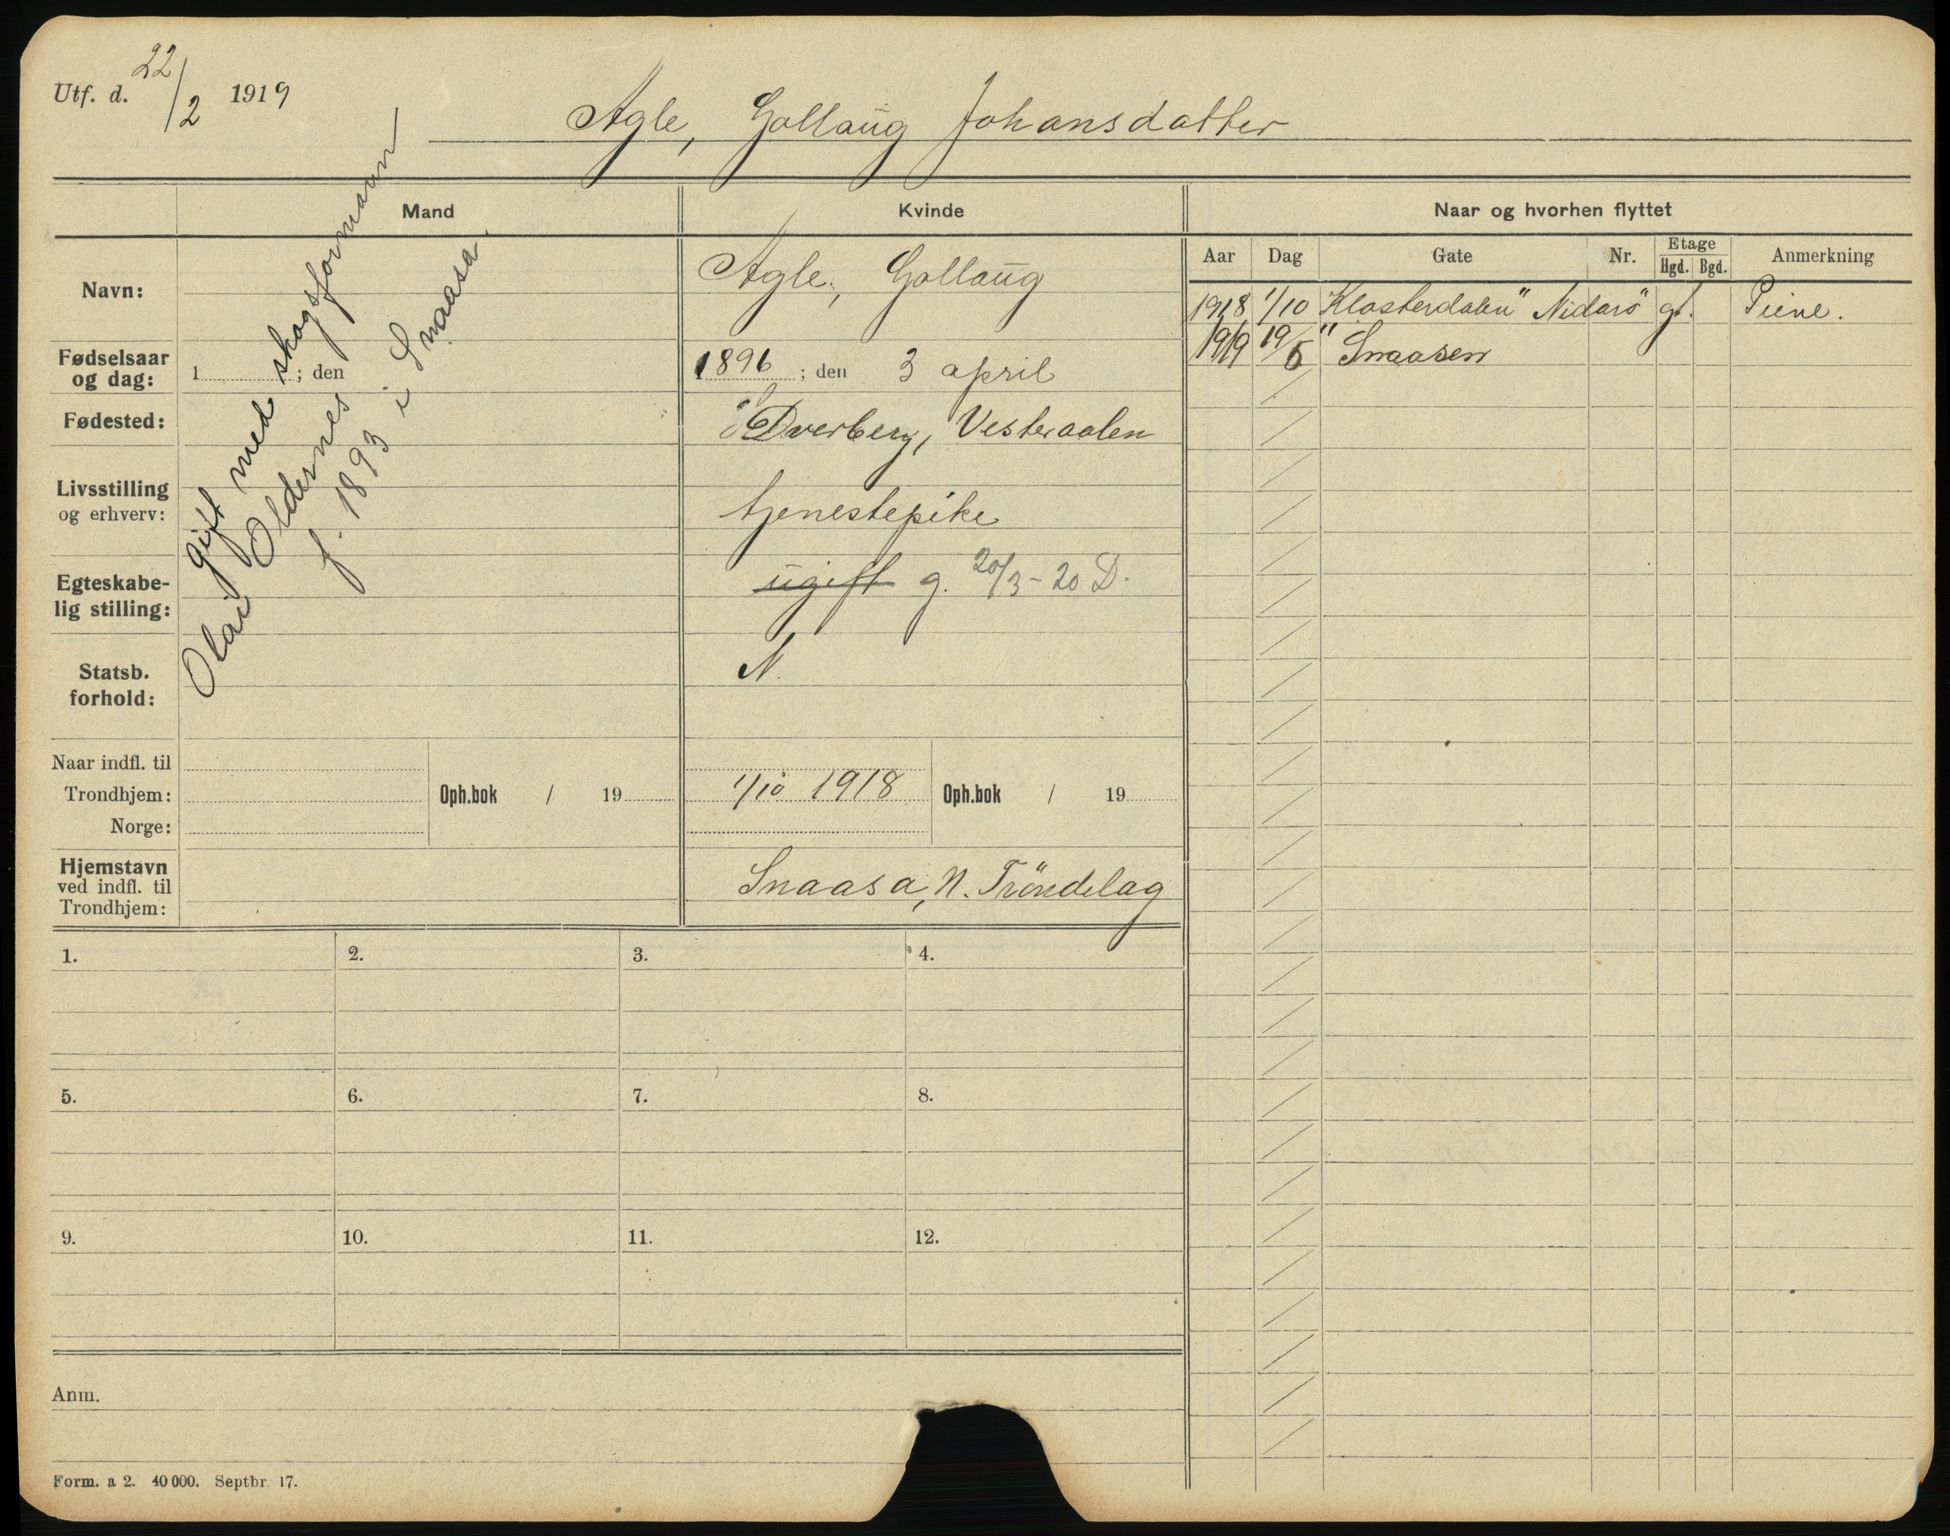 Utf. d. 22/2 1919
Agle, Gollaug Johansdatter
Mand
Kvinde
Naar og hvorhen flyttet
Aar Dag Gate Nr. Etage Hgd. Bgd. Anmerkning
Navn:
Agle, Gollaug
1918 1/10 "Klosterdalen" Nidarö gt. Piene.
1919 19/5 Snaasen
Fødselsaar og dag:
1 ; den
1896 ; den 3 april
Fødested:
Dverberg, Vesteraalen
Livsstilling og erhverv:
tjenestepike
Egteskabe-
lig stilling:
ugift g. 20/3-20 D.
Statsb.
forhold:
N.
gift med skogsformann
Olai Oldernes
f. 1893 i Snaasa.
Naar indfl. til
Trondhjem:
Oph.bok / 19
1/10 1918
Oph.bok / 19
Norge:
Hjemstavn
ved indfl. til
Trondhjem:
Snaasa, N. Tröndelag
1. 2. 3. 4.
5. 6. 7. 8.
9. 10. 11. 12.
Anm.
Form. a 2. 40 000. Septbr. 17.